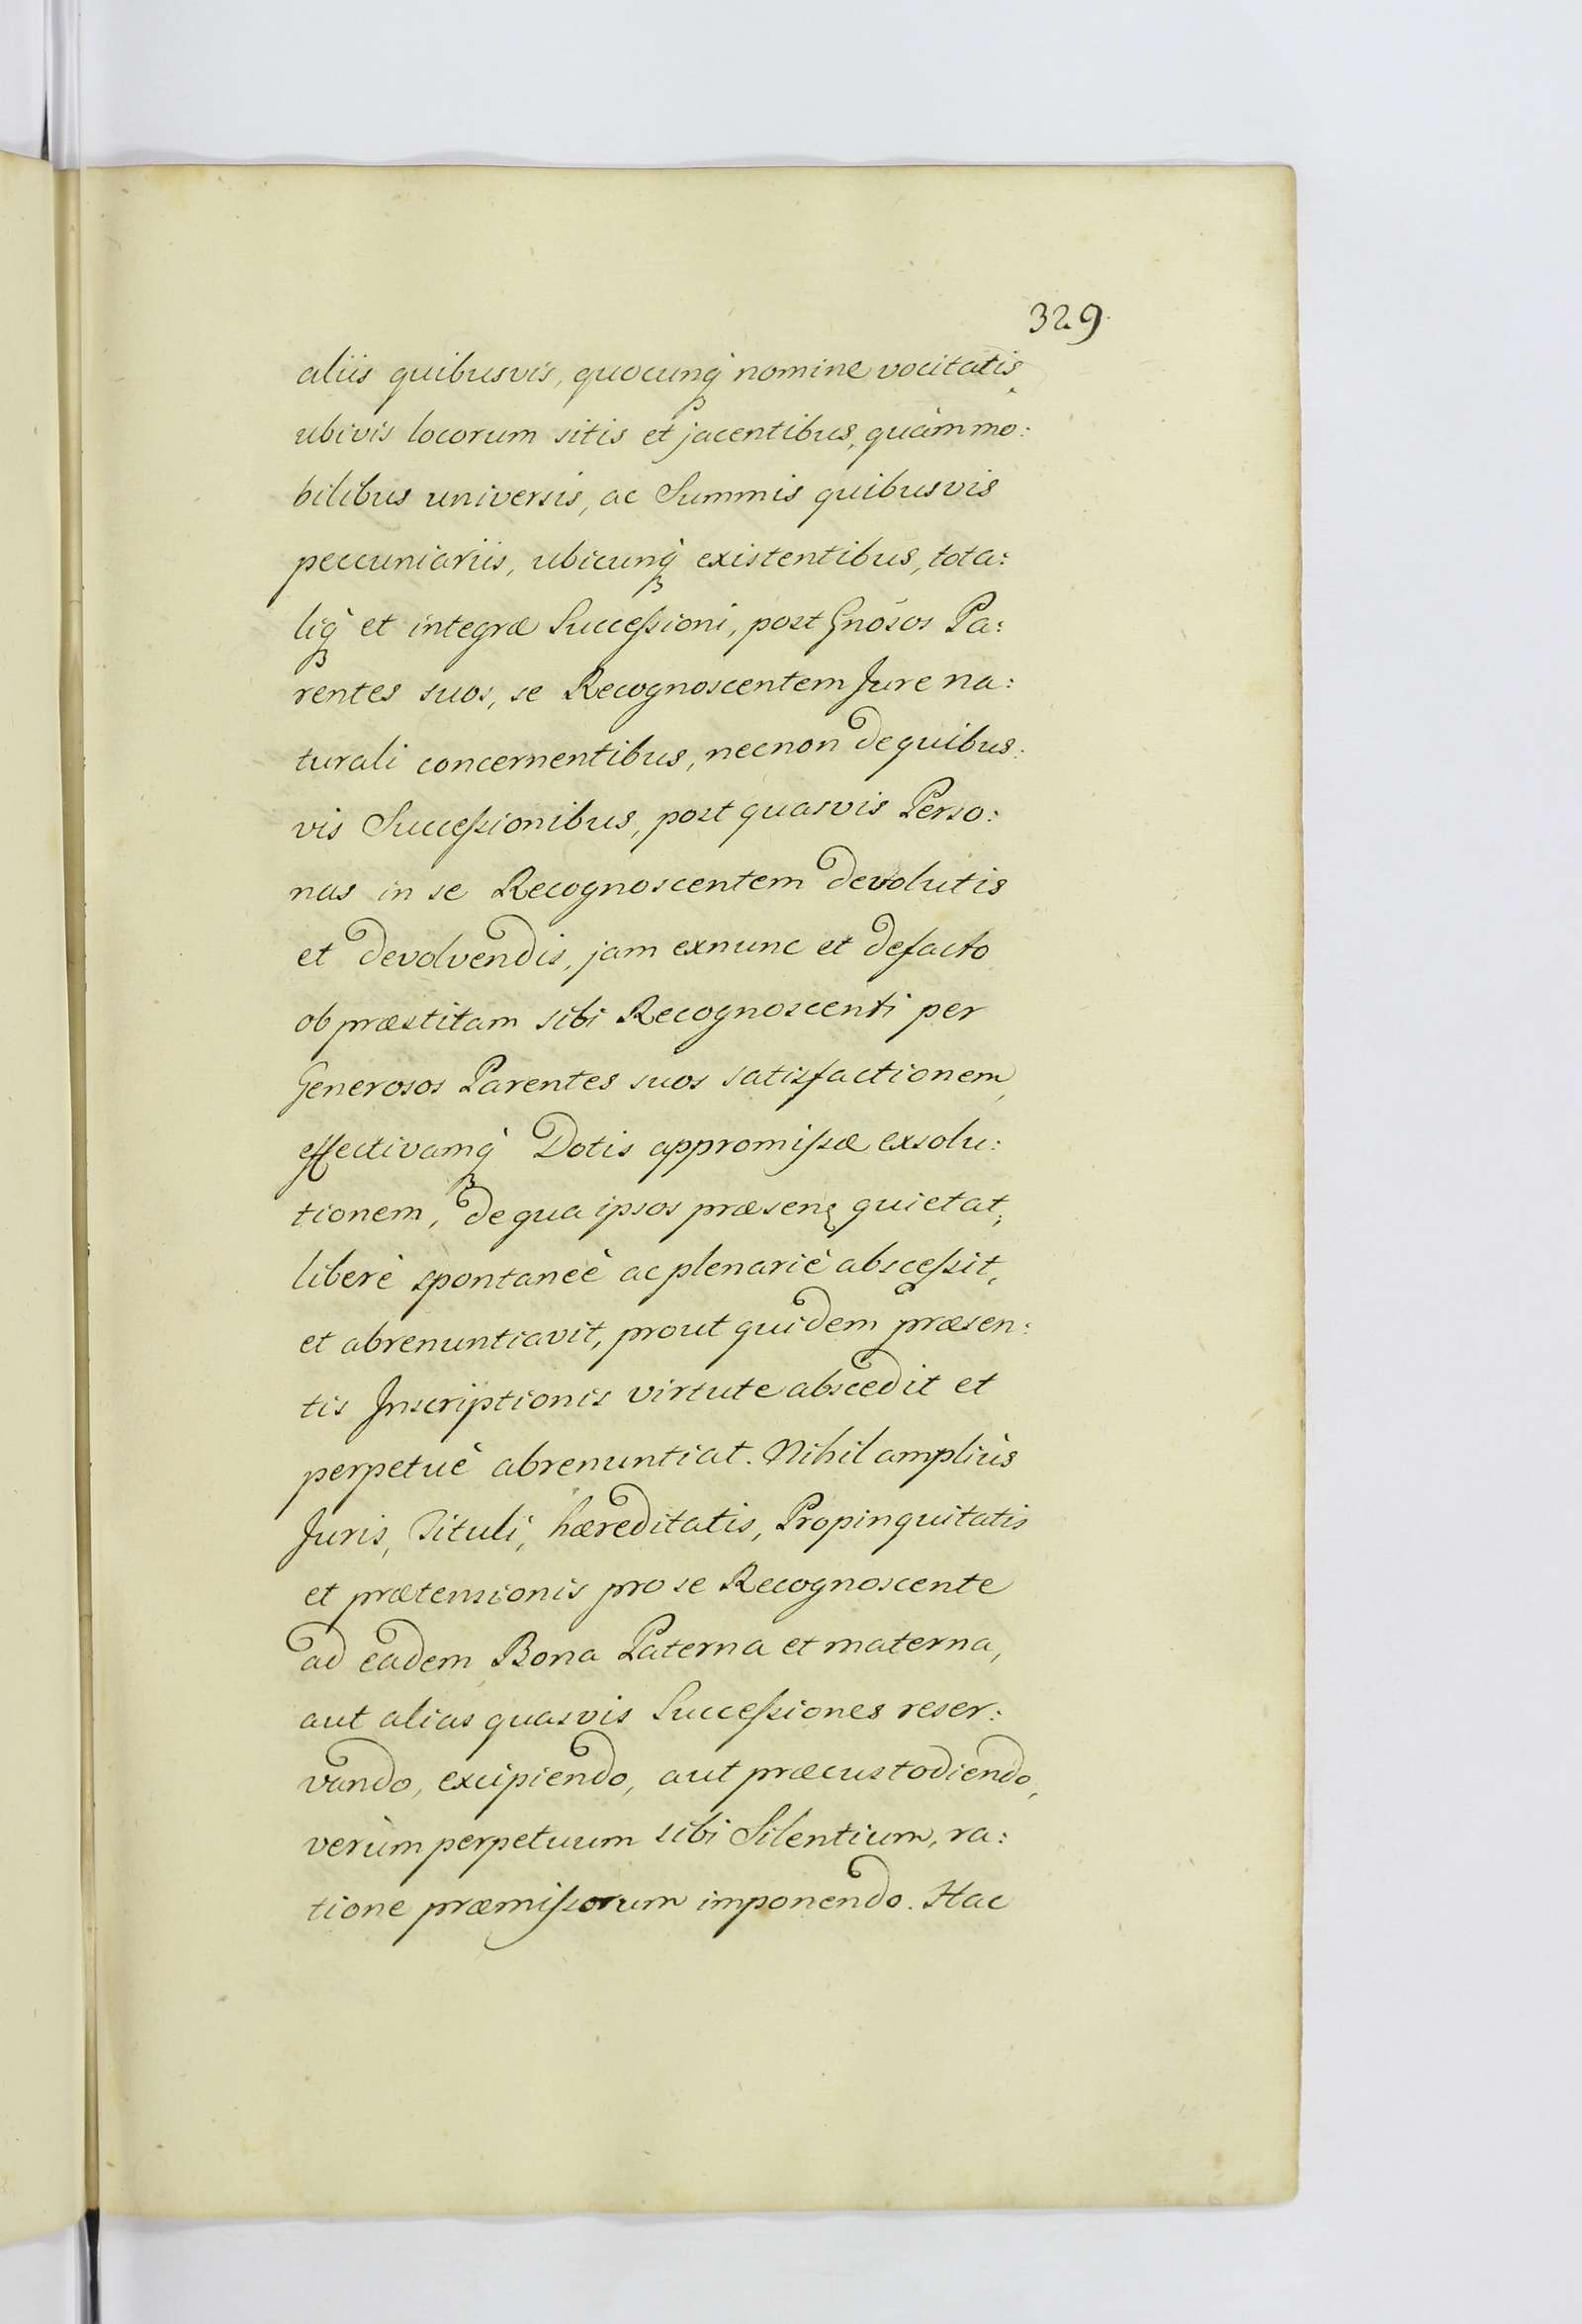 329.
aliis quibusvis, quocunq̀ nomine vocitatis,
ubivis locorum sitis et jacentibus, quàm mo:
bilibus universis, ac Summis quibusvis
peccuniariis, ubicunq̀ existentibus, tota:
liq̀ et integræ Succeſsioni, post Gnōsos Pa:
rentes suos, se Recognoscentem Jure na:
turali concernentibus, necnon de quibus:
vis Succeſsionibus, post quasvis Perso:
nas in se Recognoscentem devolutis
et devolvendis, jam exnunc et defacto
ob præstitam sibi Recognoscenti per
Generosos Parentes suos satisfactionem,
effectivamq̀ Dotis appromiſsæ exsolu:
tionem, de qua ipsos præsenę quietat,
liberè spontaneè ac plenariè absceſsit,
et abrenuntiavit, prout quidem præsen:
tis Inscriptionis virtute abscedit et
perpetuè abrenuntiat. Nihil ampliùs
Juris, Tituli, hæreditatis, Propinquitatis
et prætensionis pro se Recognoscente
ad eadem Bona Paterna et materna,
aut alias quasvis Succeſsiones reser:
vando, excipiendo, aut præcustodiendo,
verùm perpetuum sibi Silentium, ra:
tione præmiſsorum imponendo. Hac